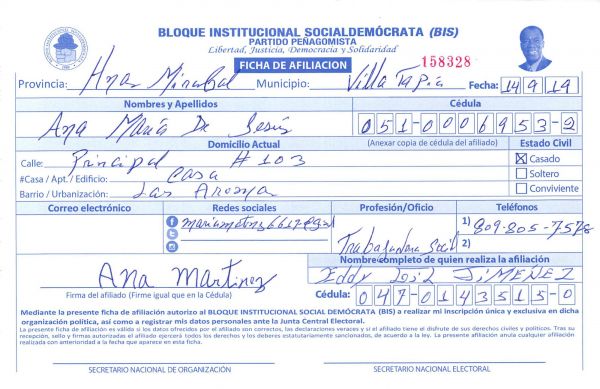 BLOQUE INSTITUCIONAL SOCIALDEMÓCRATA (BIS)
PARTIDO PEÑAGOMISTA
Libertad, Justicia, Democracia y Solidaridad
FICHA DE AFILIACION 158328
Provincia: Hnas Mirabal Municipio: Villa Tapia Fecha: 14 9 19
Nombres y Apellidos Cédula
Ana María De Jesús 051-0006953-2
Domicilio Actual (Anexar copia de cédula del afiliado) Estado Civil
Calle: Principal #103 Casado
#Casa / Apt. / Edificio: Casa Soltero
Barrio / Urbanización: Las Conviviente
Correo electrónico Redes sociales Profesión/Oficio Teléfonos
1) 809-805-7578
Trabajadora Social 2)
Nombre completo de quien realiza la afiliación
Ana Martinez Eddy JIMENEZ
Firma del afiliado (Firme igual que en la Cédula) Cédula: 047-0143515-0
Mediante la presente ficha de afiliación autorizo al BLOQUE INSTITUCIONAL SOCIAL DEMÓCRATA (BIS) a realizar mi inscripción única y exclusiva en dicha
organización política, así como a registrar mis datos personales ante la Junta Central Electoral.
La presente ficha de afiliación es válida si los datos ofrecidos por el afiliado son correctos, las declaraciones veraces y si el afiliado tiene el disfrute de sus derechos civiles y políticos. Tras su
recepción, sello y firmas autorizadas el afiliado ejercerá todos los derechos y los deberes estatutariamente sancionados, de acuerdo a la ley. La presente afiliación anula cualquier afiliación
realizada con anterioridad a la fecha que aparece en esta ficha.
SECRETARIO NACIONAL DE ORGANIZACIÓN SECRETARIO NACIONAL ELECTORAL